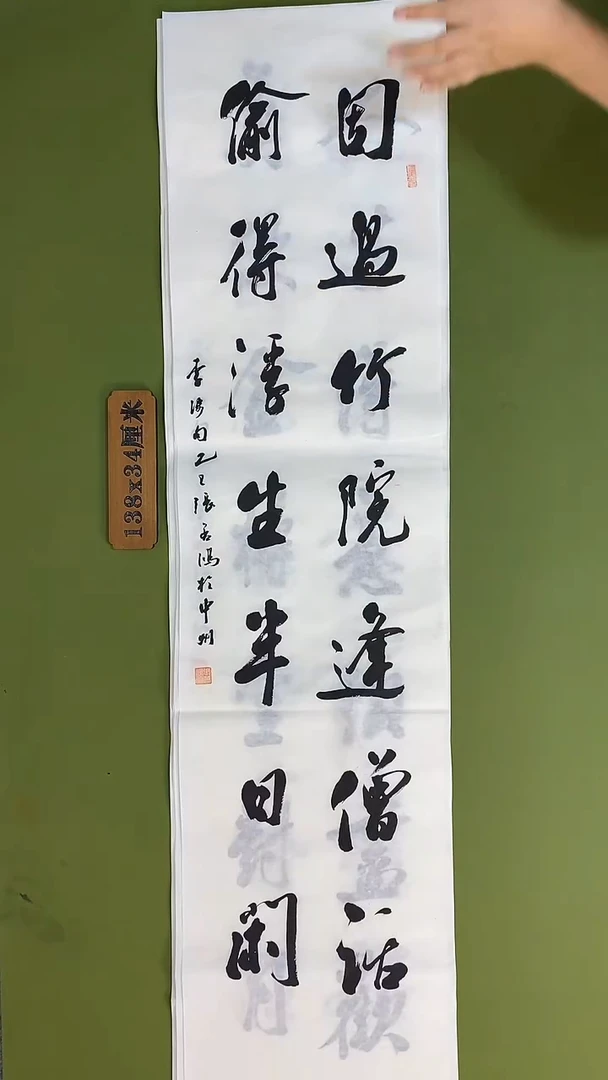 因過竹院逢僧話
偷得浮生半日閑
李涉句乙巳張鴻於中州
138x34厘米